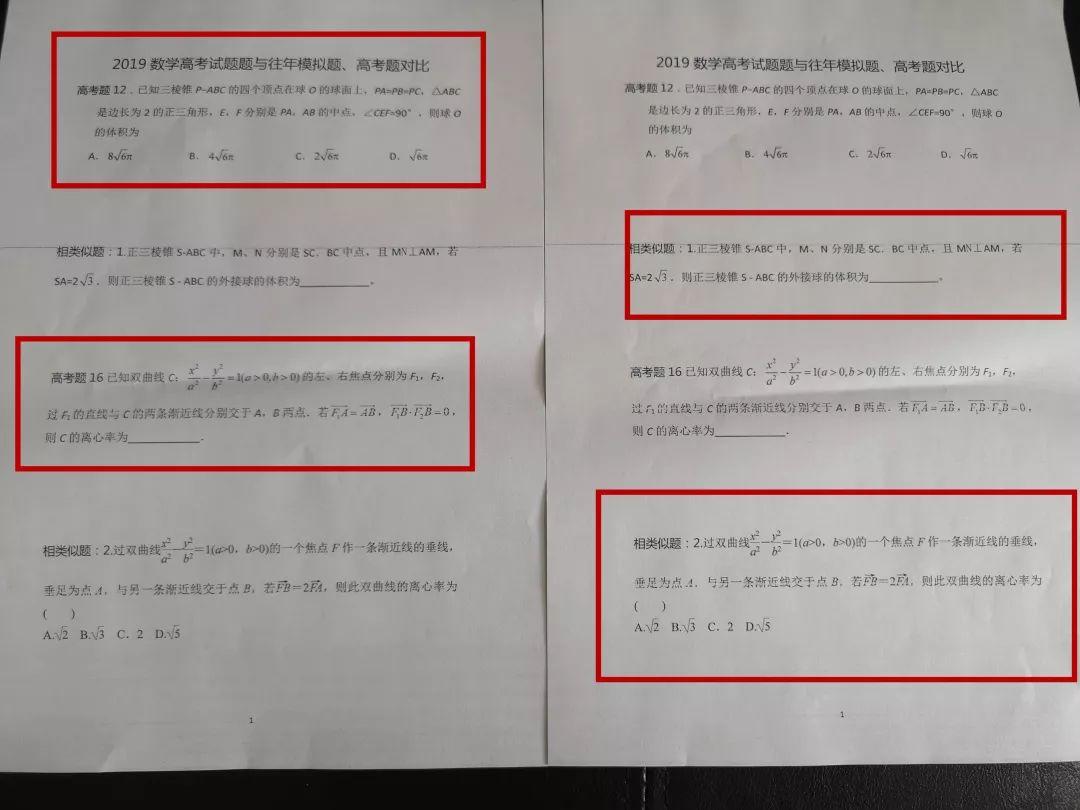 2019 数学高考试题题与往年模拟题、高考题对比
高考题 12．已知三棱锥 P-ABC 的四个顶点在球 O 的球面上，PA=PB=PC，△ABC
是边长为 2 的正三角形，E，F 分别是 PA，AB 的中点，∠CEF=90°，则球 O
的体积为
A. 8√6π B. 4√6π C. 2√6π D. √6π
相类似题：1.正三棱锥 S-ABC 中，M、N 分别是 SC．BC 中点，且 MN⊥AM，若
SA=2√3．则正三棱锥 S - ABC 的外接球的体积为____________。
高考题 16 已知双曲线 C：x²/a² - y²/b² =1(a>0,b>0) 的左、右焦点分别为 F₁，F₂，
过 F₁ 的直线与 C 的两条渐近线分别交于 A，B 两点．若 F₁A→ = AB→，F₁B→·F₂B→=0，
则 C 的离心率为____________．
相类似题：2.过双曲线x²/a² - y²/b²=1(a>0，b>0)的一个焦点 F 作一条渐近线的垂线，
垂足为点 A．与另一条渐近线交于点 B，若FB→=2FA→，则此双曲线的离心率为
( )
A.√2 B.√3 C．2 D.√5
1
2019 数学高考试题题与往年模拟题、高考题对比
高考题 12．已知三棱锥 P-ABC 的四个顶点在球 O 的球面上，PA=PB=PC，△ABC
是边长为 2 的正三角形．E，F 分别是 PA，AB 的中点，∠CEF=90°，则球 O
的体积为
A. 8√6π B. 4√6π C. 2√6π D. √6π
相类似题：1.正三棱锥 S-ABC 中，M、N 分别是 SC．BC 中点，且 MN⊥AM，若
SA=2√3．则正三棱锥 S - ABC 的外接球的体积为____________。
高考题 16 已知双曲线 C：x²/a² - y²/b² =1(a>0,b>0) 的左、右焦点分别为 F₁，F₂，
过 F₁ 的直线与 C 的两条渐近线分别交于 A，B 两点．若 F₁A→ = AB→，F₁B→·F₂B→=0，
则 C 的离心率为____________．
相类似题：2.过双曲线x²/a² - y²/b²=1(a>0，b>0)的一个焦点 F 作一条渐近线的垂线，
垂足为点 A．与另一条渐近线交于点 B，若FB→=2FA→，则此双曲线的离心率为
( )
A.√2 B.√3 C．2 D.√5
1